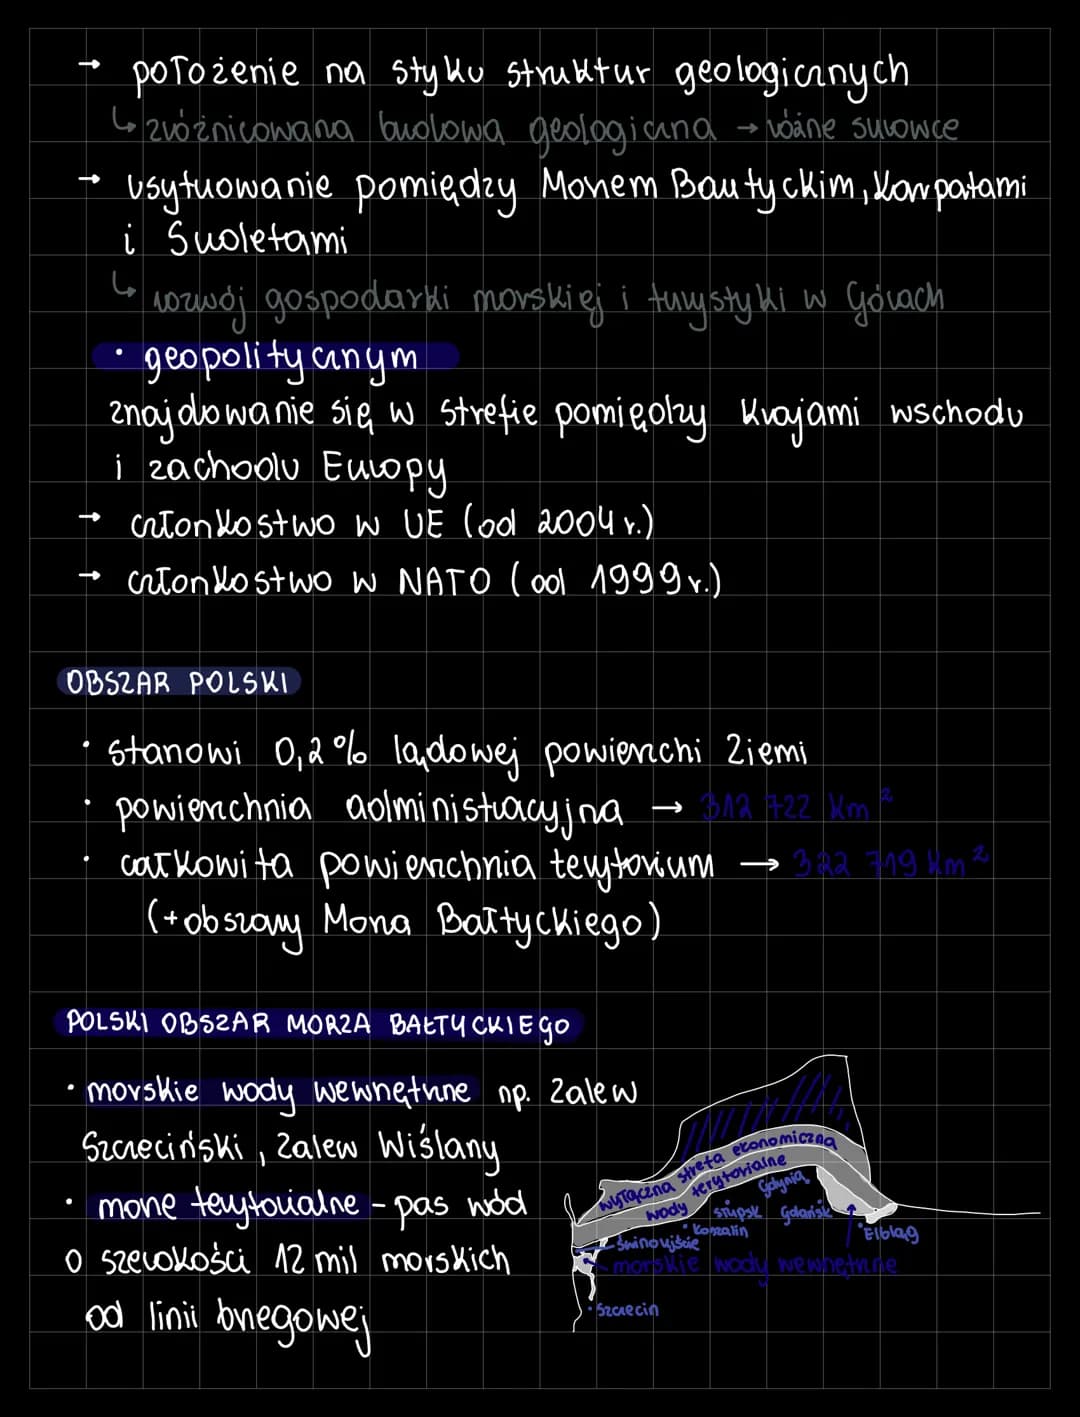 → położenie na styku struktur geologicznych
↳ zróżnicowana budowa geologiczna → różne surowce
→ usytuowanie pomiędzy Morzem Bałtyckim, Karpatami
i Sudetami
↳ rozwój gospodarki morskiej i turystyki w Górach
• geopolitycznym
znajdowanie się w strefie pomiędzy krajami wschodu
i zachodu Europy
→ członkostwo w UE (od 2004 r.)
→ członkostwo w NATO (od 1999 r.)
OBSZAR POLSKI
• stanowi 0,2% lądowej powierzchi Ziemi
• powierzchnia administracyjna → 312 722 km²
• całkowita powierzchnia terytorium → 322 719 km²
(+ obszary Morza Bałtyckiego)
POLSKI OBSZAR MORZA BAŁTYCKIEGO
• morskie wody wewnętrzne np. Zalew
Szczeciński, Zalew Wiślany
• morze terytorialne - pas wód
o szerokości 12 mil morskich
od linii brzegowej
wyłączna strefa ekonomiczna
wody terytorialne
Gdynia
Słupsk Gdańsk
• Koszalin
• Elbląg
Świnoujście
morskie wody wewnętrzne
• Szczecin